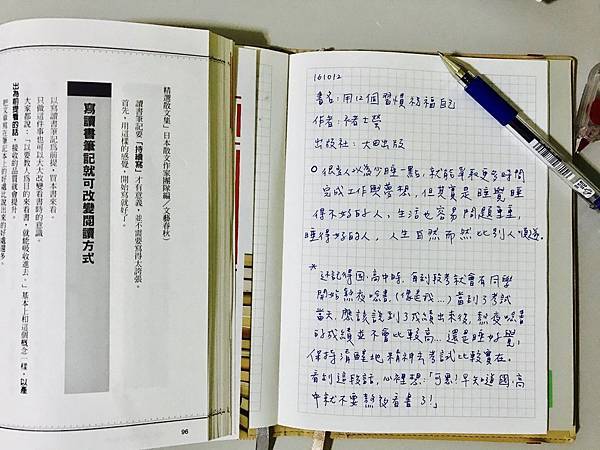 精選散文集」日本散文作家團隊編/文藝春秋)
讀書筆記要「持續寫」才有意義,並不需要寫得太誇張。
首先,用這樣的感覺,開始寫就好了。
寫讀書筆記就可改變閱讀方式
以寫讀書筆記為前提,買本書來看。
只做這件事也可以大大改變看書時的意識。
大家都說:「以要教人為目的來看書,就能吸收進去。」基本上和這個概念一樣,以產
出為前提看的話,接收的品質就會提升。
把文章寫在筆記本上的好處比說出來的好處還多。
96
161012
書名:用12個習慣祝福自己
作者:褚士瑩
出版社:大田出版
○ 很多人以為少睡一點,就能爭取更多時間
完成工作與夢想,但其實是睡覺睡
得不好的人,生活也容易問題重重,
睡得好的人,人生自然而然比別人順遂。
* 還記得國、高中時,每到段考就會有同學
開始熬夜唸書(像是我...)當到了考試
當天,應該說到了成績出來後,熬夜唸書
的成績並不會比較高...還是睡好覺,
保持清醒地精神去考試比較實在。
看到這段話,心裡想:「可惡!早知道國、高
中就不要熬夜看書了!」